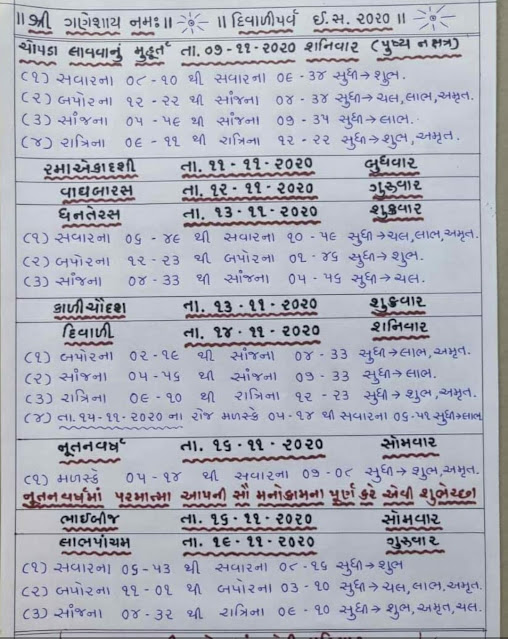 ॥ શ્રી ગણેશાય નમઃ ॥ ॥ દિવાળીપર્વ ઈ.સ. ૨૦૨૦ ॥
ચોપડા લાવવાનું મુહૂર્ત તા. ૦૭-૧૧-૨૦૨૦ શનિવાર (પુષ્ય નક્ષત્ર)
(૧) સવારના ૦૮-૧૦ થી સવારના ૦૯-૩૪ સુધી→શુભ.
(૨) બપોરના ૧૨-૨૨ થી સાંજના ૦૪-૩૪ સુધી→ચલ,લાભ,અમૃત.
(૩) સાંજના ૦૫-૫૯ થી સાંજના ૦૭-૩૫ સુધી→લાભ.
(૪) રાત્રિના ૦૯-૧૧ થી રાત્રિના ૧૨-૨૨ સુધી→શુભ,અમૃત.
રમાએકાદશી તા. ૧૧-૧૧-૨૦૨૦ બુધવાર
વાઘબારસ તા. ૧૨-૧૧-૨૦૨૦ ગુરુવાર
ધનતેરસ તા. ૧૩-૧૧-૨૦૨૦ શુક્રવાર
(૧) સવારના ૦૬-૪૯ થી સવારના ૧૦-૫૯ સુધી→ચલ,લાભ,અમૃત.
(૨) બપોરના ૧૨-૨૩ થી બપોરના ૦૧-૪૬ સુધી→શુભ.
(૩) સાંજના ૦૪-૩૩ થી સાંજના ૦૫-૫૬ સુધી→ચલ.
કાળીચૌદશ તા. ૧૩-૧૧-૨૦૨૦ શુક્રવાર
દિવાળી તા. ૧૪-૧૧-૨૦૨૦ શનિવાર
(૧) બપોરના ૦૨-૧૯ થી સાંજના ૦૪-૩૩ સુધી→લાભ,અમૃત.
(૨) સાંજના ૦૫-૫૬ થી સાંજના ૦૭-૩૩ સુધી→લાભ.
(૩) રાત્રિના ૦૯-૧૦ થી રાત્રિના ૧૨-૨૩ સુધી→શુભ,અમૃત.
(૪) તા.૧૫-૧૧-૨૦૨૦ ના રોજ મળસ્કે ૦૫-૧૪ થી સવારના ૦૬-૫૧ સુધી→લાભ
નૂતનવર્ષ તા. ૧૬-૧૧-૨૦૨૦ સોમવાર
(૧) મળસ્કે ૦૫-૧૪ થી સવારના ૦૭-૦૮ સુધી→શુભ,અમૃત.
નૂતનવર્ષમાં પરમાત્મા આપની સૌ મનોકામના પૂર્ણ કરે એવી શુભેચ્છા
ભાઈબીજ તા. ૧૬-૧૧-૨૦૨૦ સોમવાર
લાભપાંચમ તા. ૧૯-૧૧-૨૦૨૦ ગુરુવાર
(૧) સવારના ૦૬-૫૩ થી સવારના ૦૮-૧૬ સુધી→શુભ
(૨) બપોરના ૧૧-૦૧ થી બપોરના ૦૩-૧૦ સુધી→ચલ,લાભ,અમૃત.
(૩) સાંજના ૦૪-૩૨ થી રાત્રિના ૦૯-૧૦ સુધી→શુભ,અમૃત,ચલ.